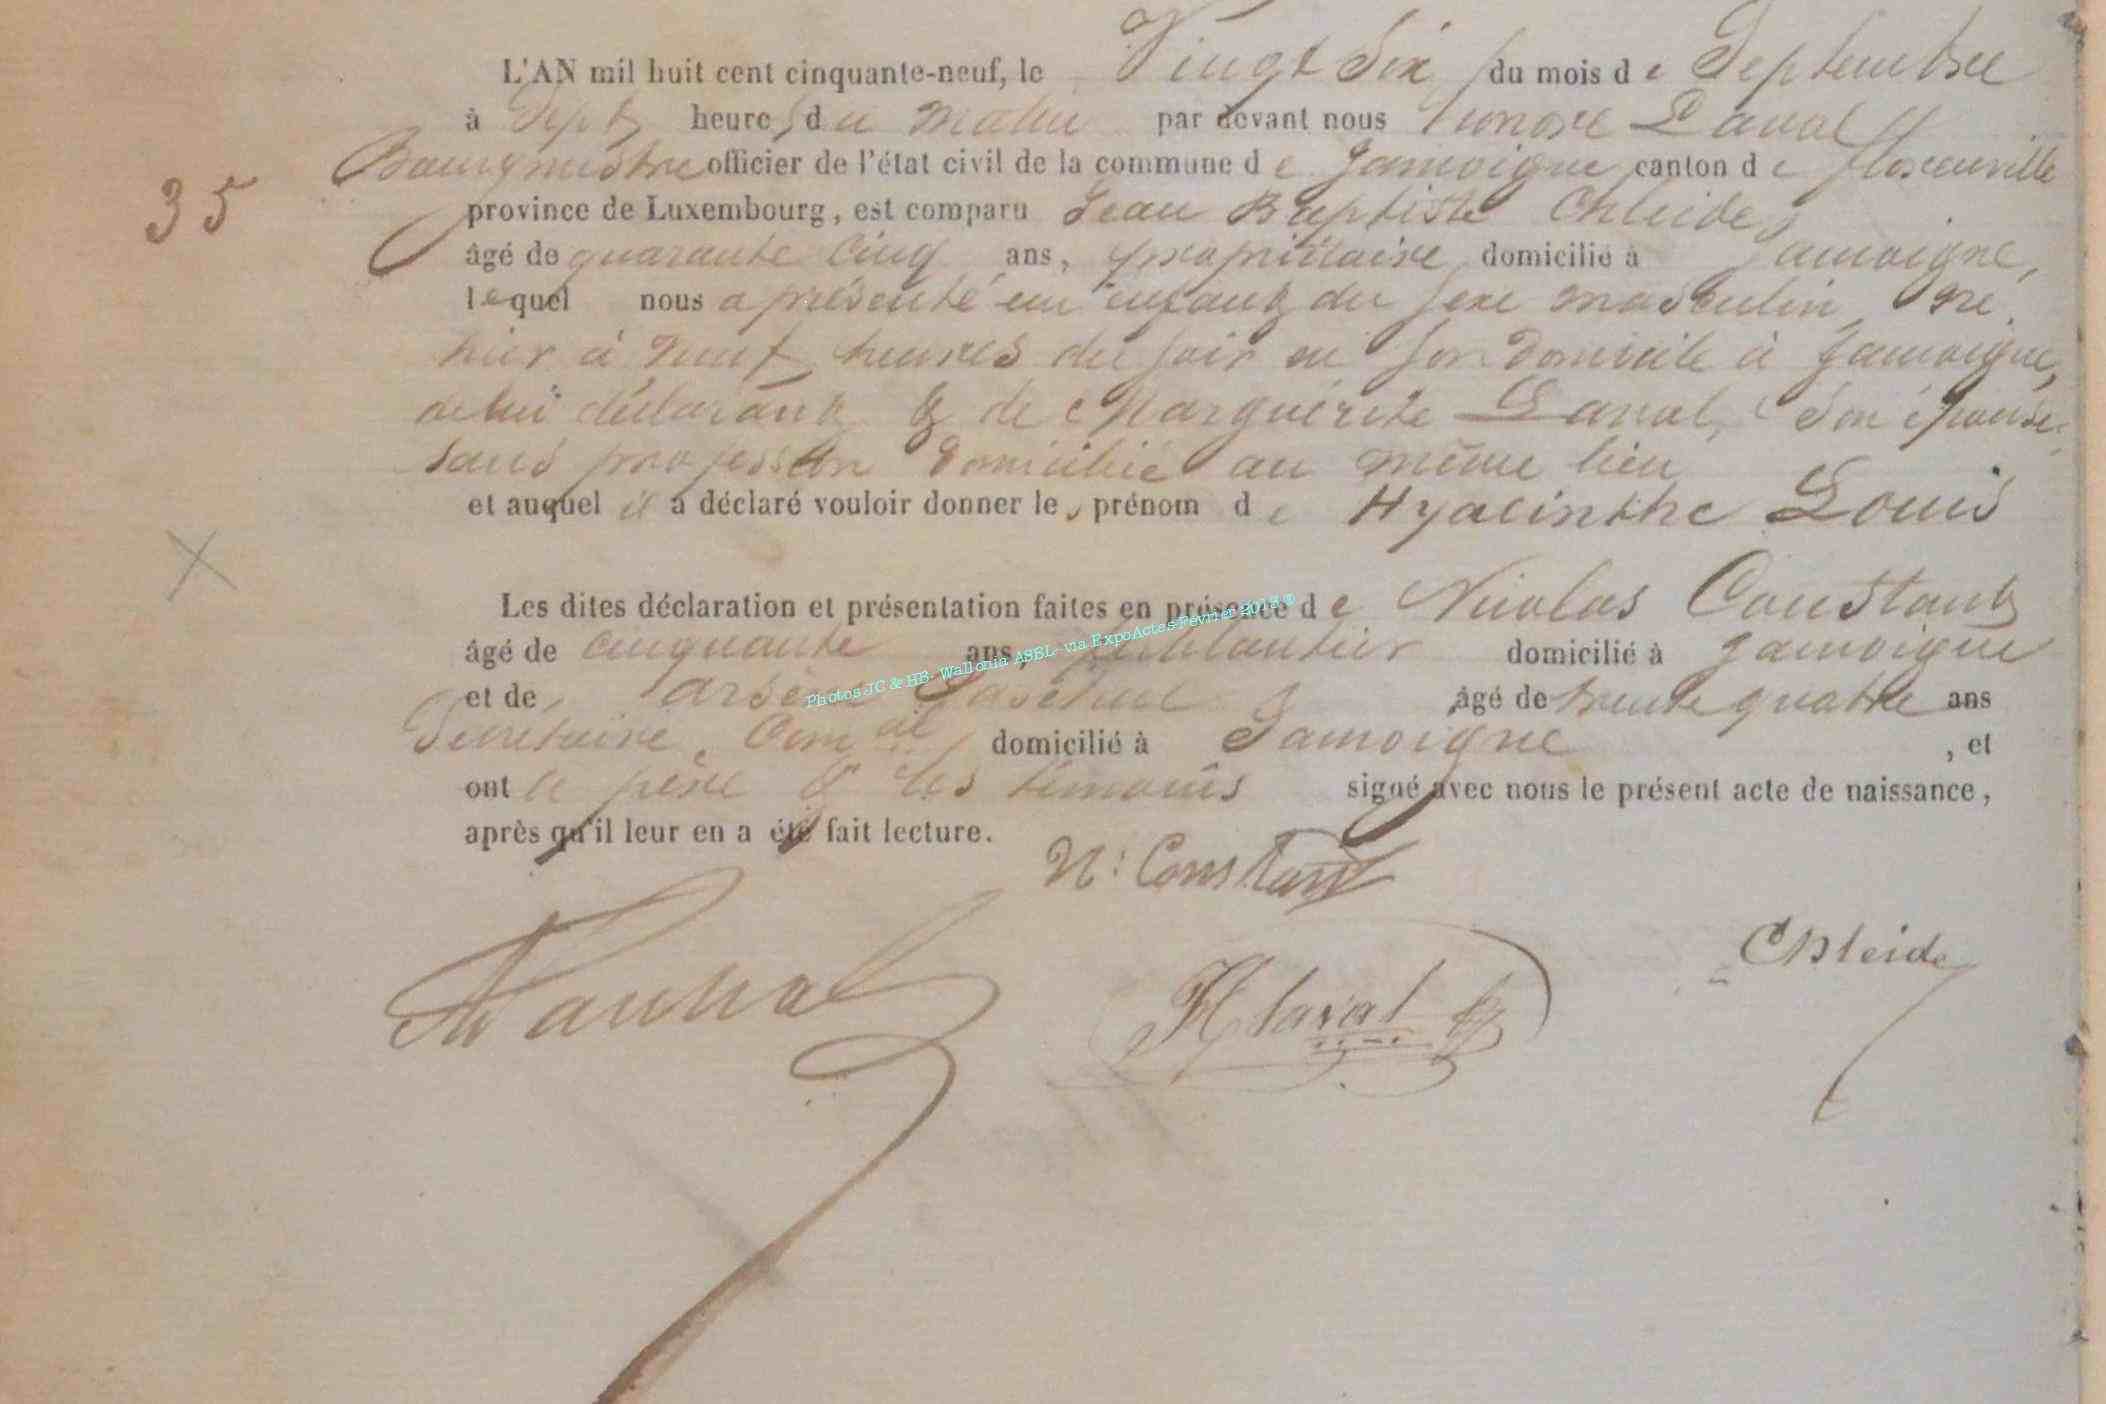 L'AN mil huit cent cinquante-neuf, le Vingt Six du mois de Septembre
à Sept heures du matin par devant nous honoré Laval
Bourgmestre officier de l'état civil de la commune de Jamoigne canton de florenville
35
province de Luxembourg, est comparu Jean Baptiste Chleide,
âgé de quarante Cinq ans, propriétaire domicilié à Jamoigne,
lequel nous a présenté un enfant du sexe masculin, né
hier à neuf heures du soir en son domicile à Jamoigne,
de lui déclarant & de Marguerite Laval, son épouse,
sans profession domiciliée au même lieu
et auquel il a déclaré vouloir donner les prénom de Hyacinthe Louis
Les dites déclaration et présentation faites en présence de Nicolas Constant
âgé de cinquante ans, ferblantier domicilié à Jamoigne
Photos JC & HB- Wallonia ASBL- via ExpoActes Février 2013 ®
et de arsène âgé de trente quatre ans
Secrétaire Comal domicilié à Jamoigne, et
ont le père & les témoins signé avec nous le présent acte de naissance,
après qu'il leur en a été fait lecture.
N: Constant
Chleide
H Laval